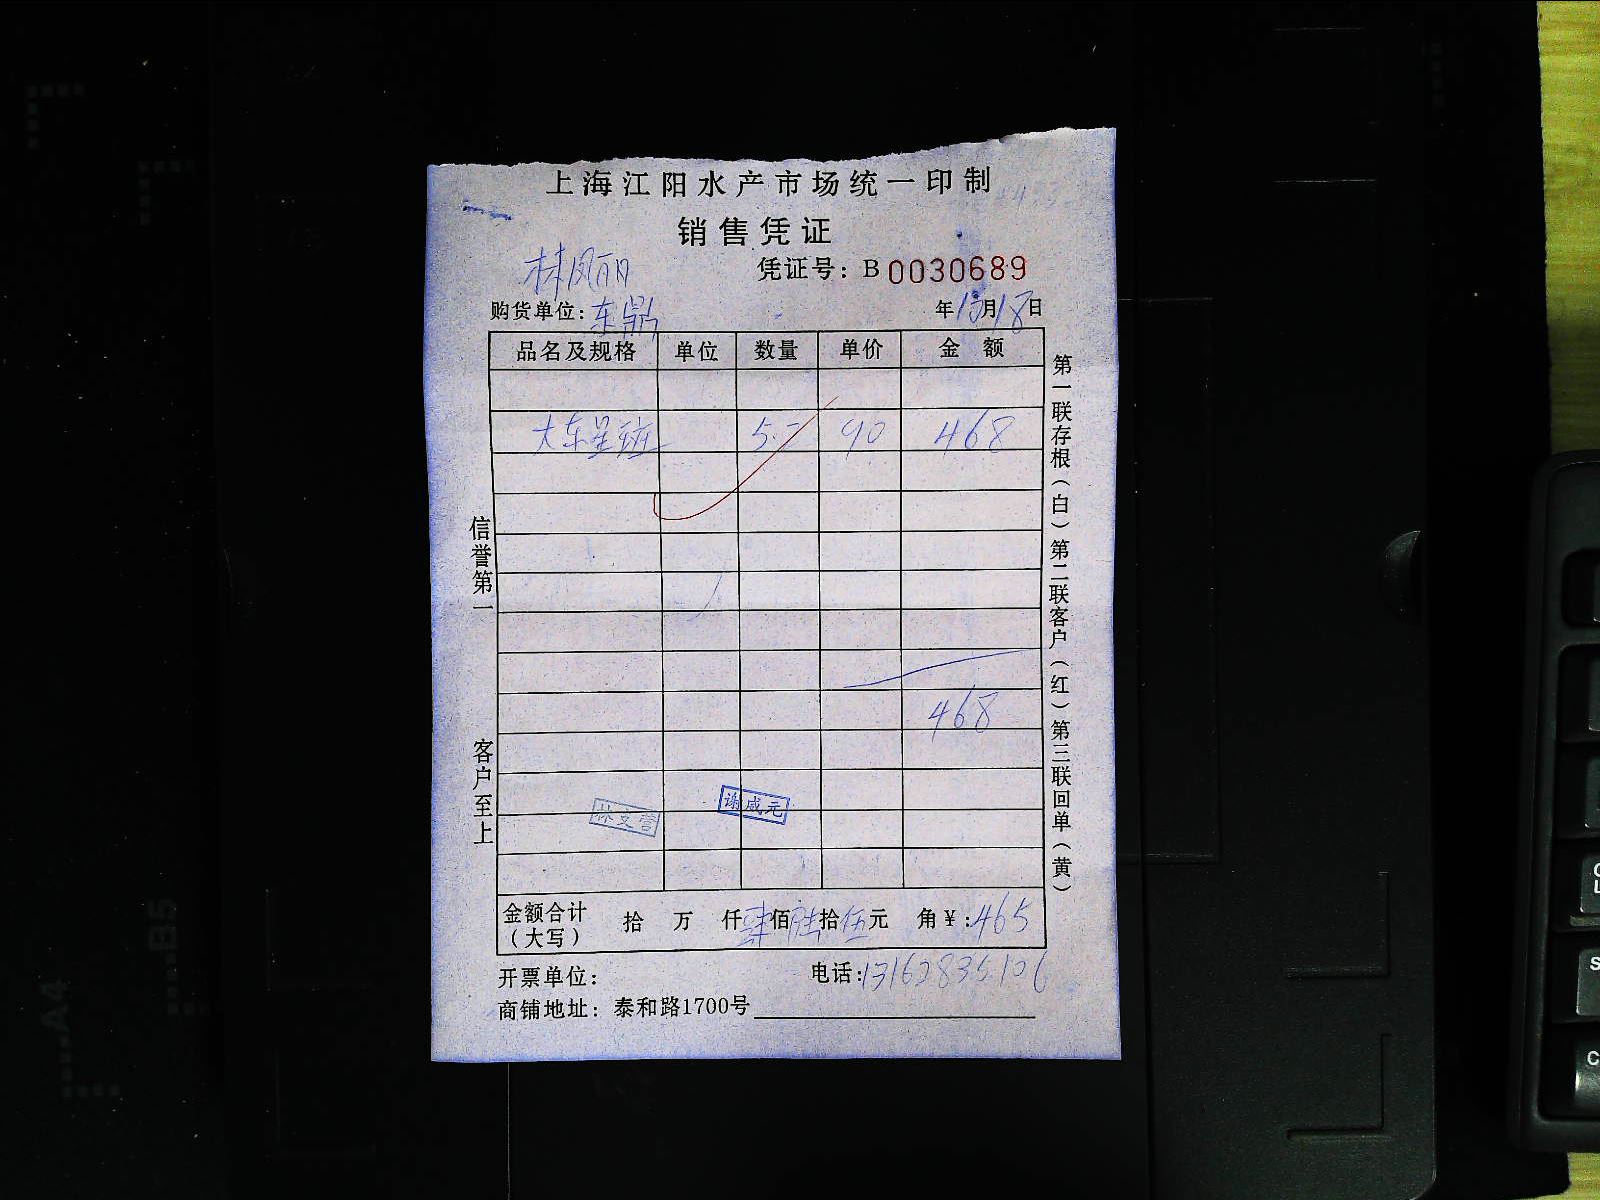 上海江阳水产市场统一印制
销售凭证
林凤丽
凭证号：B 0030689
购货单位：东鼎
年10月18日
品名及规格 单位 数量 单价 金额
大东星斑 90 468
468
谢咸元
金额合计（大写） 拾 万 仟肆佰陆拾伍元 角¥：465
开票单位：
电话：
商铺地址：泰和路1700号
信誉第一 客户至上
第一联存根（白）第二联客户（红）第三联回单（黄）
A4
B5